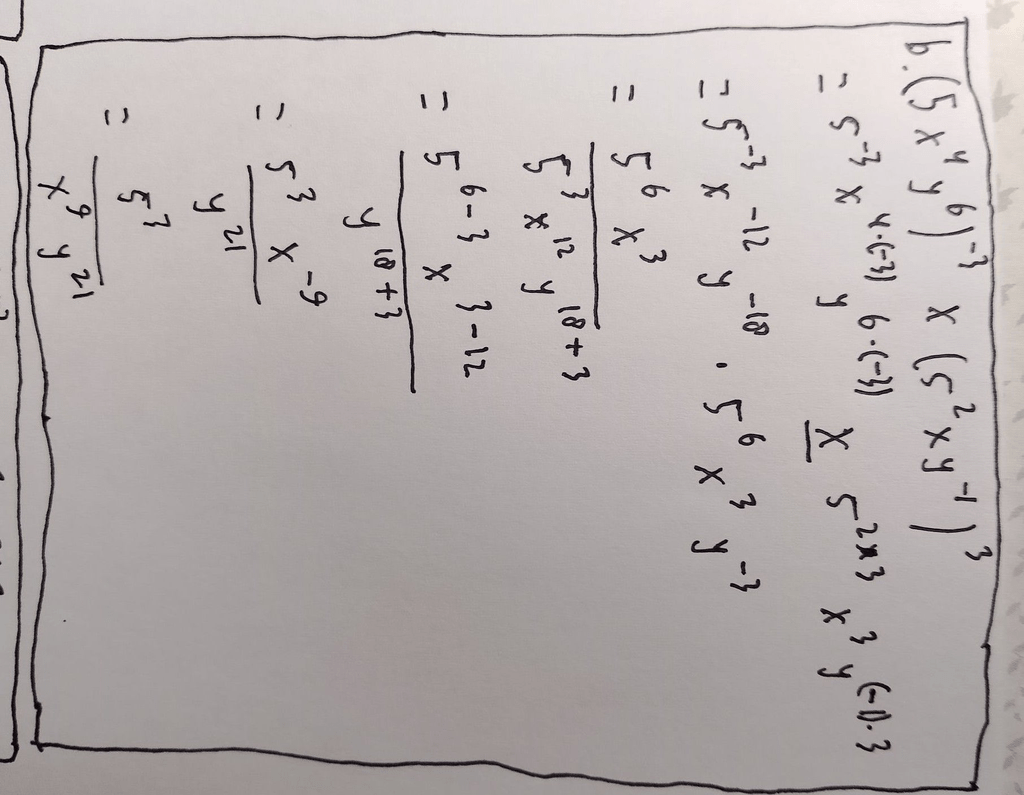 b. (5 x⁴ y⁶)⁻³ x (5² x y⁻¹)³
= 5⁻³ x⁴·⁽⁻³⁾ y⁶·⁽⁻³⁾ x 5²ˣ³ x³ y⁽⁻¹⁾·³
= 5⁻³ x⁻¹² y⁻¹⁸ · 5⁶ x³ y⁻³
= 5⁶ x³
5³ x¹² y¹⁸⁺³
= 5⁶⁻³ x³⁻¹²
y¹⁸⁺³
= 5³ x⁻⁹
y²¹
= 5³
x⁹ y²¹